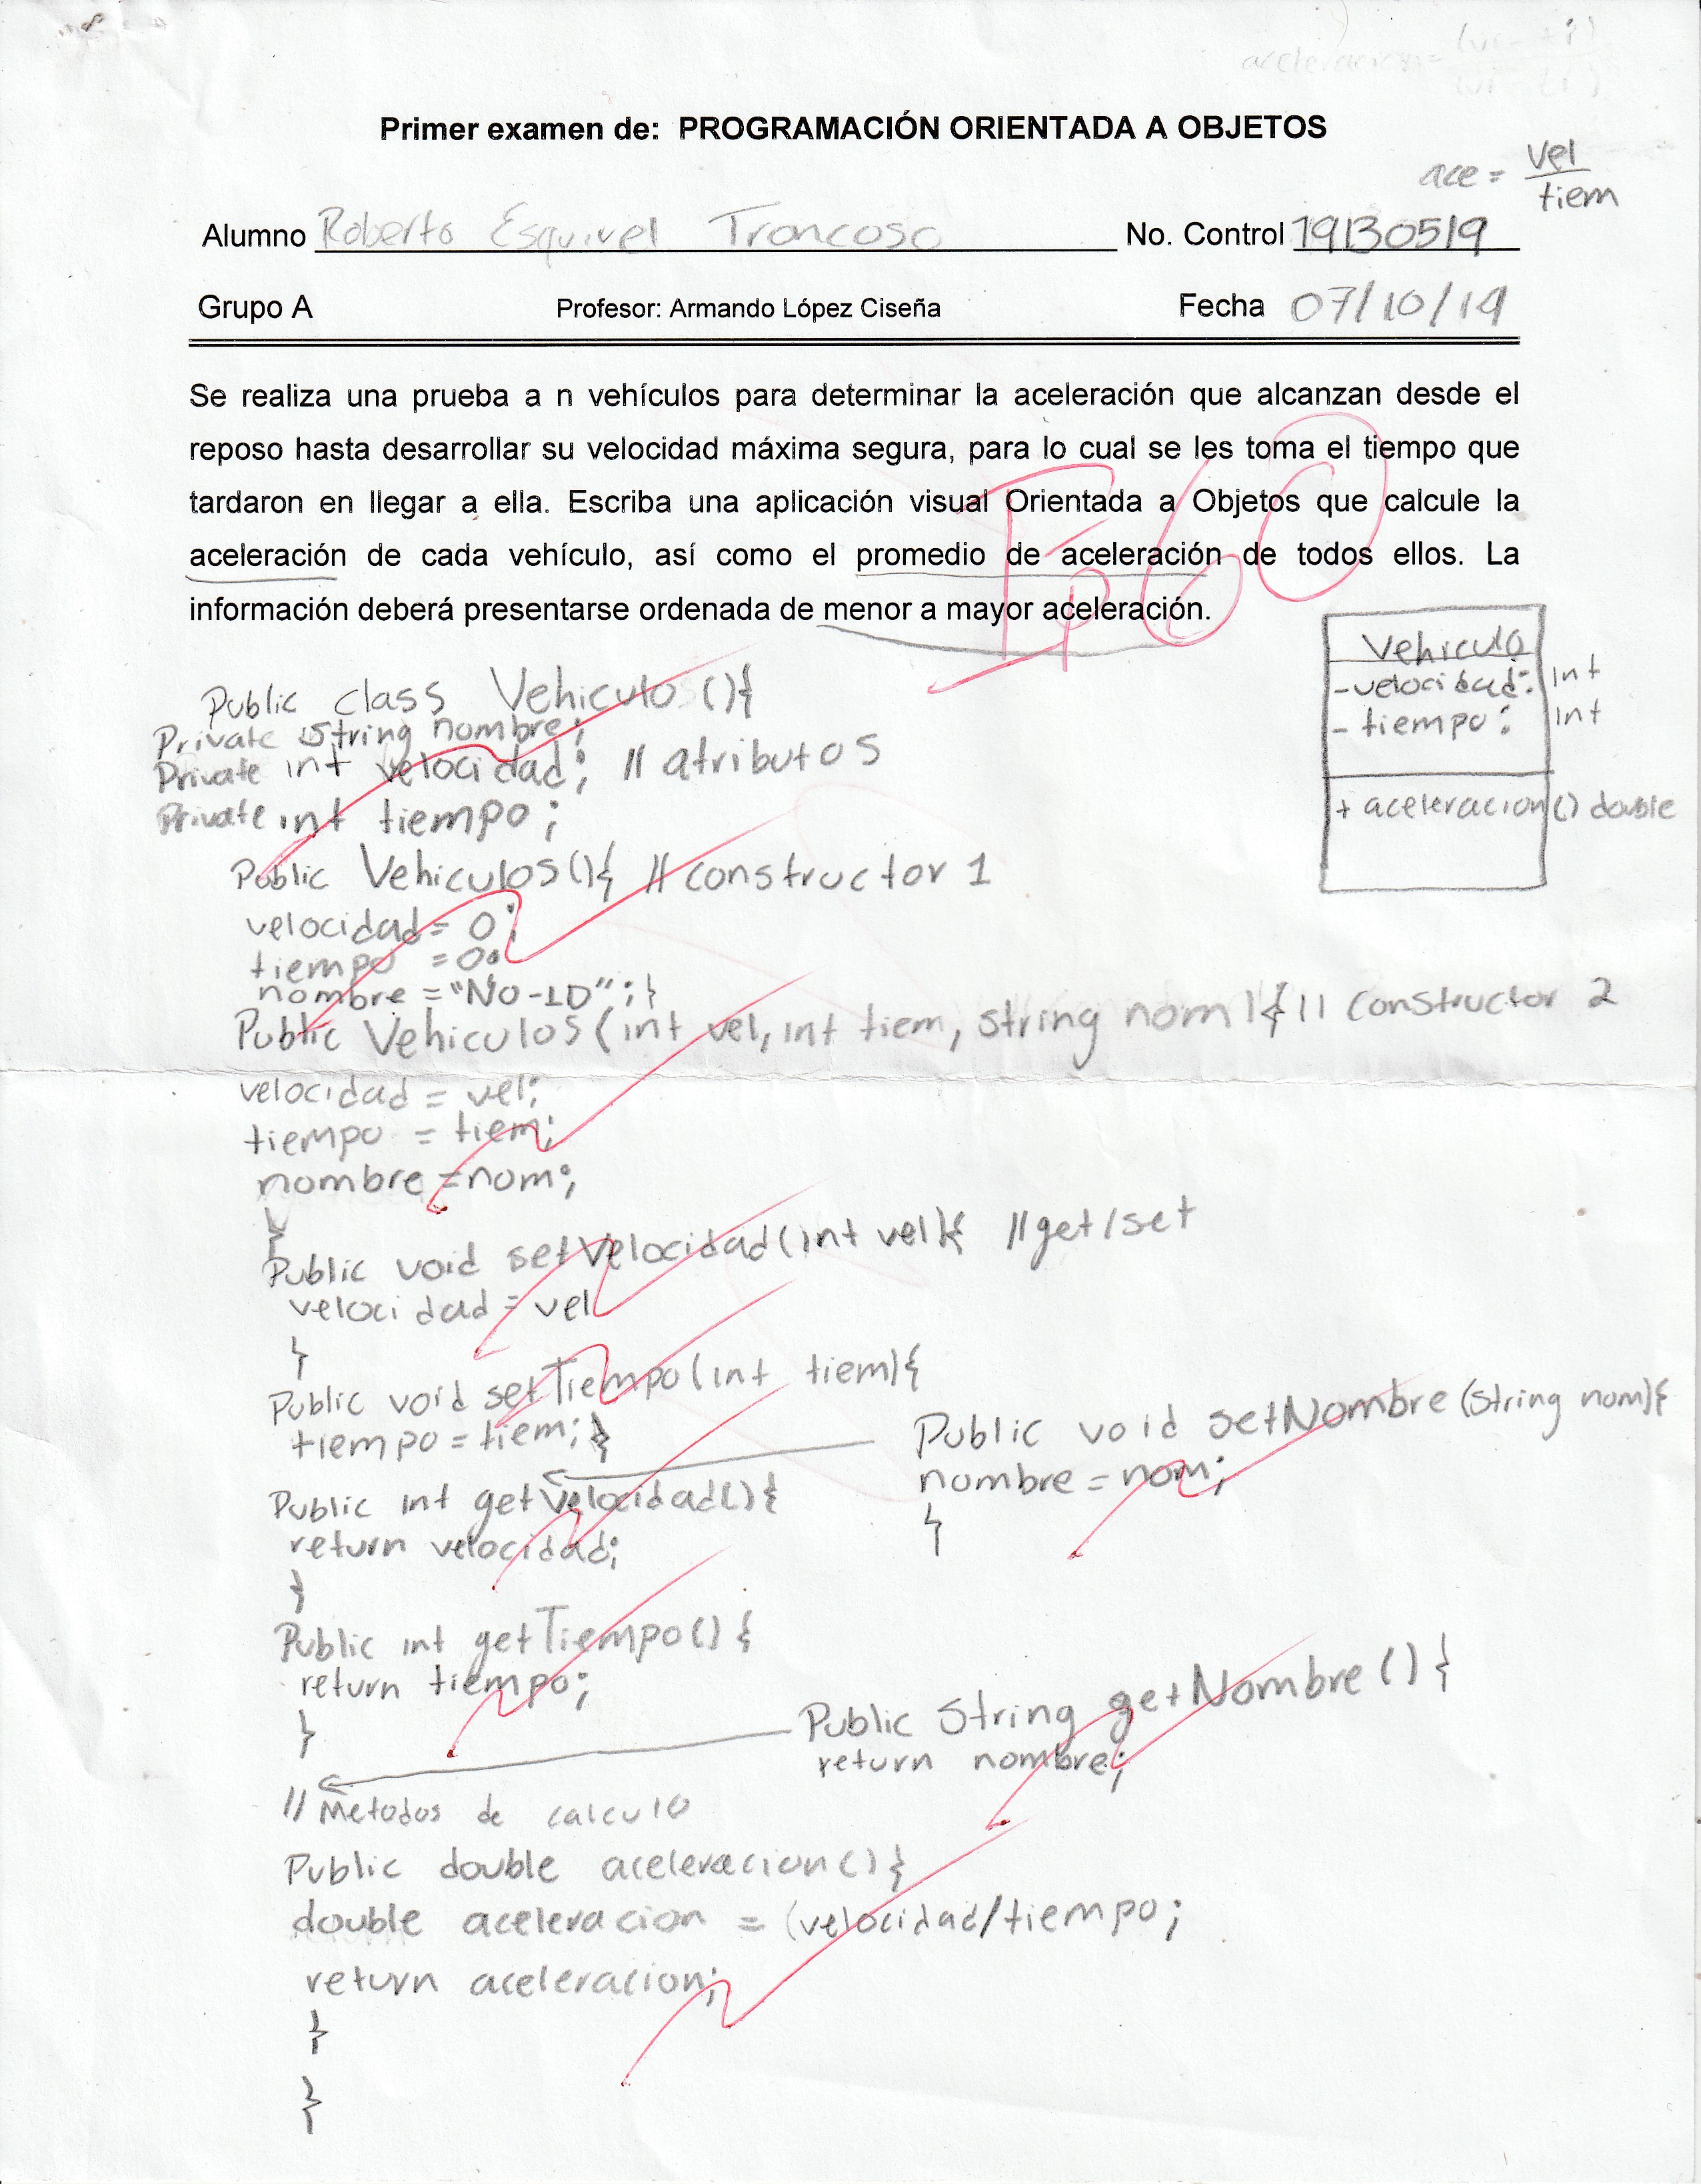 Primer examen de: PROGRAMACIÓN ORIENTADA A OBJETOS
ace = vel
tiem
Alumno Roberto Esquivel Troncoso No. Control 19130519
Grupo A Profesor: Armando López Ciseña Fecha 07/10/19
Se realiza una prueba a n vehículos para determinar la aceleración que alcanzan desde el
reposo hasta desarrollar su velocidad máxima segura, para lo cual se les toma el tiempo que
tardaron en llegar a ella. Escriba una aplicación visual Orientada a Objetos que calcule la
aceleración de cada vehículo, así como el promedio de aceleración de todos ellos. La
información deberá presentarse ordenada de menor a mayor aceleración.
60
Vehiculo
- velocidad: int
- tiempo: int
+ aceleracion() double
Public class Vehiculo (){
Private String nombre;
Private int velocidad; // atributos
Private int tiempo;
Public Vehiculos(){ // constructor 1
velocidad = 0;
tiempo = 0;
nombre = "No-ID"; }
Public Vehiculos(int vel, int tiem, string nom){ // Constructor 2
velocidad = vel;
tiempo = tiem;
nombre = nom;
}
Public void setVelocidad(int vel){ //get/set
velocidad = vel
}
Public void setTiempo(int tiem){
tiempo = tiem; }
Public void setNombre(string nom){
nombre = nom;
}
Public int getVelocidad(){
return velocidad;
}
Public int getTiempo(){
return tiempo;
}
Public String getNombre(){
return nombre;
// Metodos de calculo
Public double aceleracion(){
double aceleracion = (velocidad/tiempo;
return aceleracion;
}
}